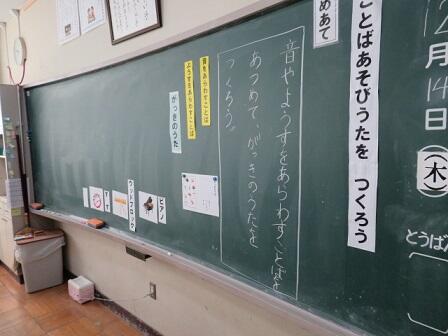 12月14日(木)
とうばん
ことばあそびうたを つくろう
めあて
音やようすをあらわすことばを
あつめて、がっきのうたを
つくろう。
音をあらわすことば
ようすをあらわすことば
がっきのうた
ピアノ
ウッドブロック